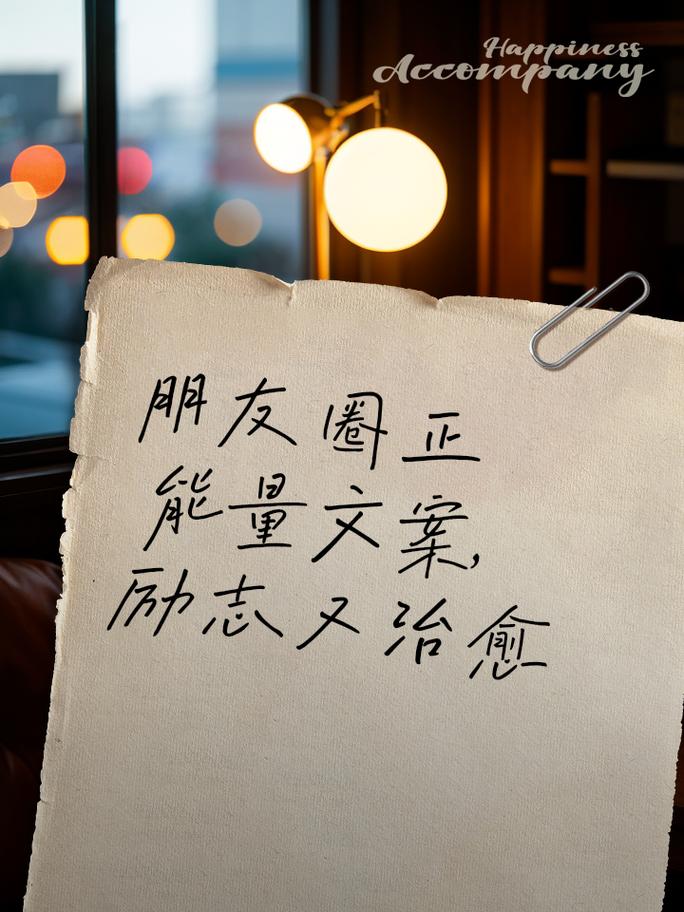 Happiness
Accompany
朋友圈正
能量文案,
励志又治愈